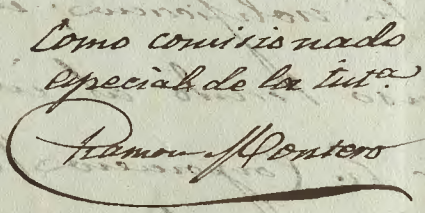 Como comisionado
especial de la Int.ª
Ramon Montero